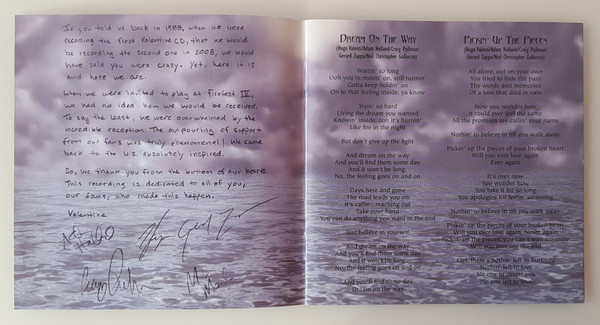 If you told us back in 1988, when we were
recording the first Valentine CD, that we would
be recording the second one in 2008, we would
have told you were crazy. Yet, here it is
and here we are.
When we were invited to play at Firefest IV,
we had no idea how we would be received.
To say the least, we were overwhelmed by the
incredible reception. The outpouring of support
from our fans was truly phenomenal! We came
back to the U.S. absolutely inspired.
So, we thank you from the bottom of our hearts
This recording is dedicated to all of you,
our fans, who made this happen.
Valentine
Dream On The Way
(Hugo Valenti/Adam Holland/Craig Pullman/
Gerard Zappa/Neil Christopher Galluccio)
Waitin' so long
Ooh you're movin' on, still runnin'
Gotta keep holdin' on
On to that feeling inside, ya know
Tryin' so hard
Living the dream you wanted
Knowin' inside, ooh it's burnin'
Like fire in the night
But don't give up the fight
And dream on the way
And you'll find them some day
And it won't be long
No, the feeling goes on and on
Days here and gone
The road leads you on
It's callin', reaching out
Take your hand
You can do anything you want in the end
Just believe in yourself
And dream on the way
And you'll find some day
And it won't be long
No, the feeling goes on and on
And you'll find some day
Dream on the way
Pickin' Up The Pieces
(Hugo Valenti/Adam Holland/Craig Pullman/
Gerard Zappa/Neil Christopher Galluccio)
All alone, out on your own
You tried to hide the pain
The words and memories
Of a love that died in vain
Now you wonder how
It could ever feel the same
All the promises are callin' your name
Nothin' to believe in till you walk away
Pickin' up the pieces of your broken heart
Will you ever love again
Ever again
It's over now
You wonder how
You take it for so long
You apologize for feelin' so wrong
Nothin' to believe in till you walk away
Pickin' up the pieces of your broken heart
Will you ever love again, never again
Pickin' up the pieces, you can't want anymore
Will you ever see the end
Girl, there's nothin' left to hurt you
Nothin' left to love
No one to desert you
No one left to love